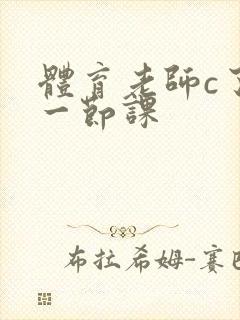 體育老師c了
一節課
布拉希姆-賽巴